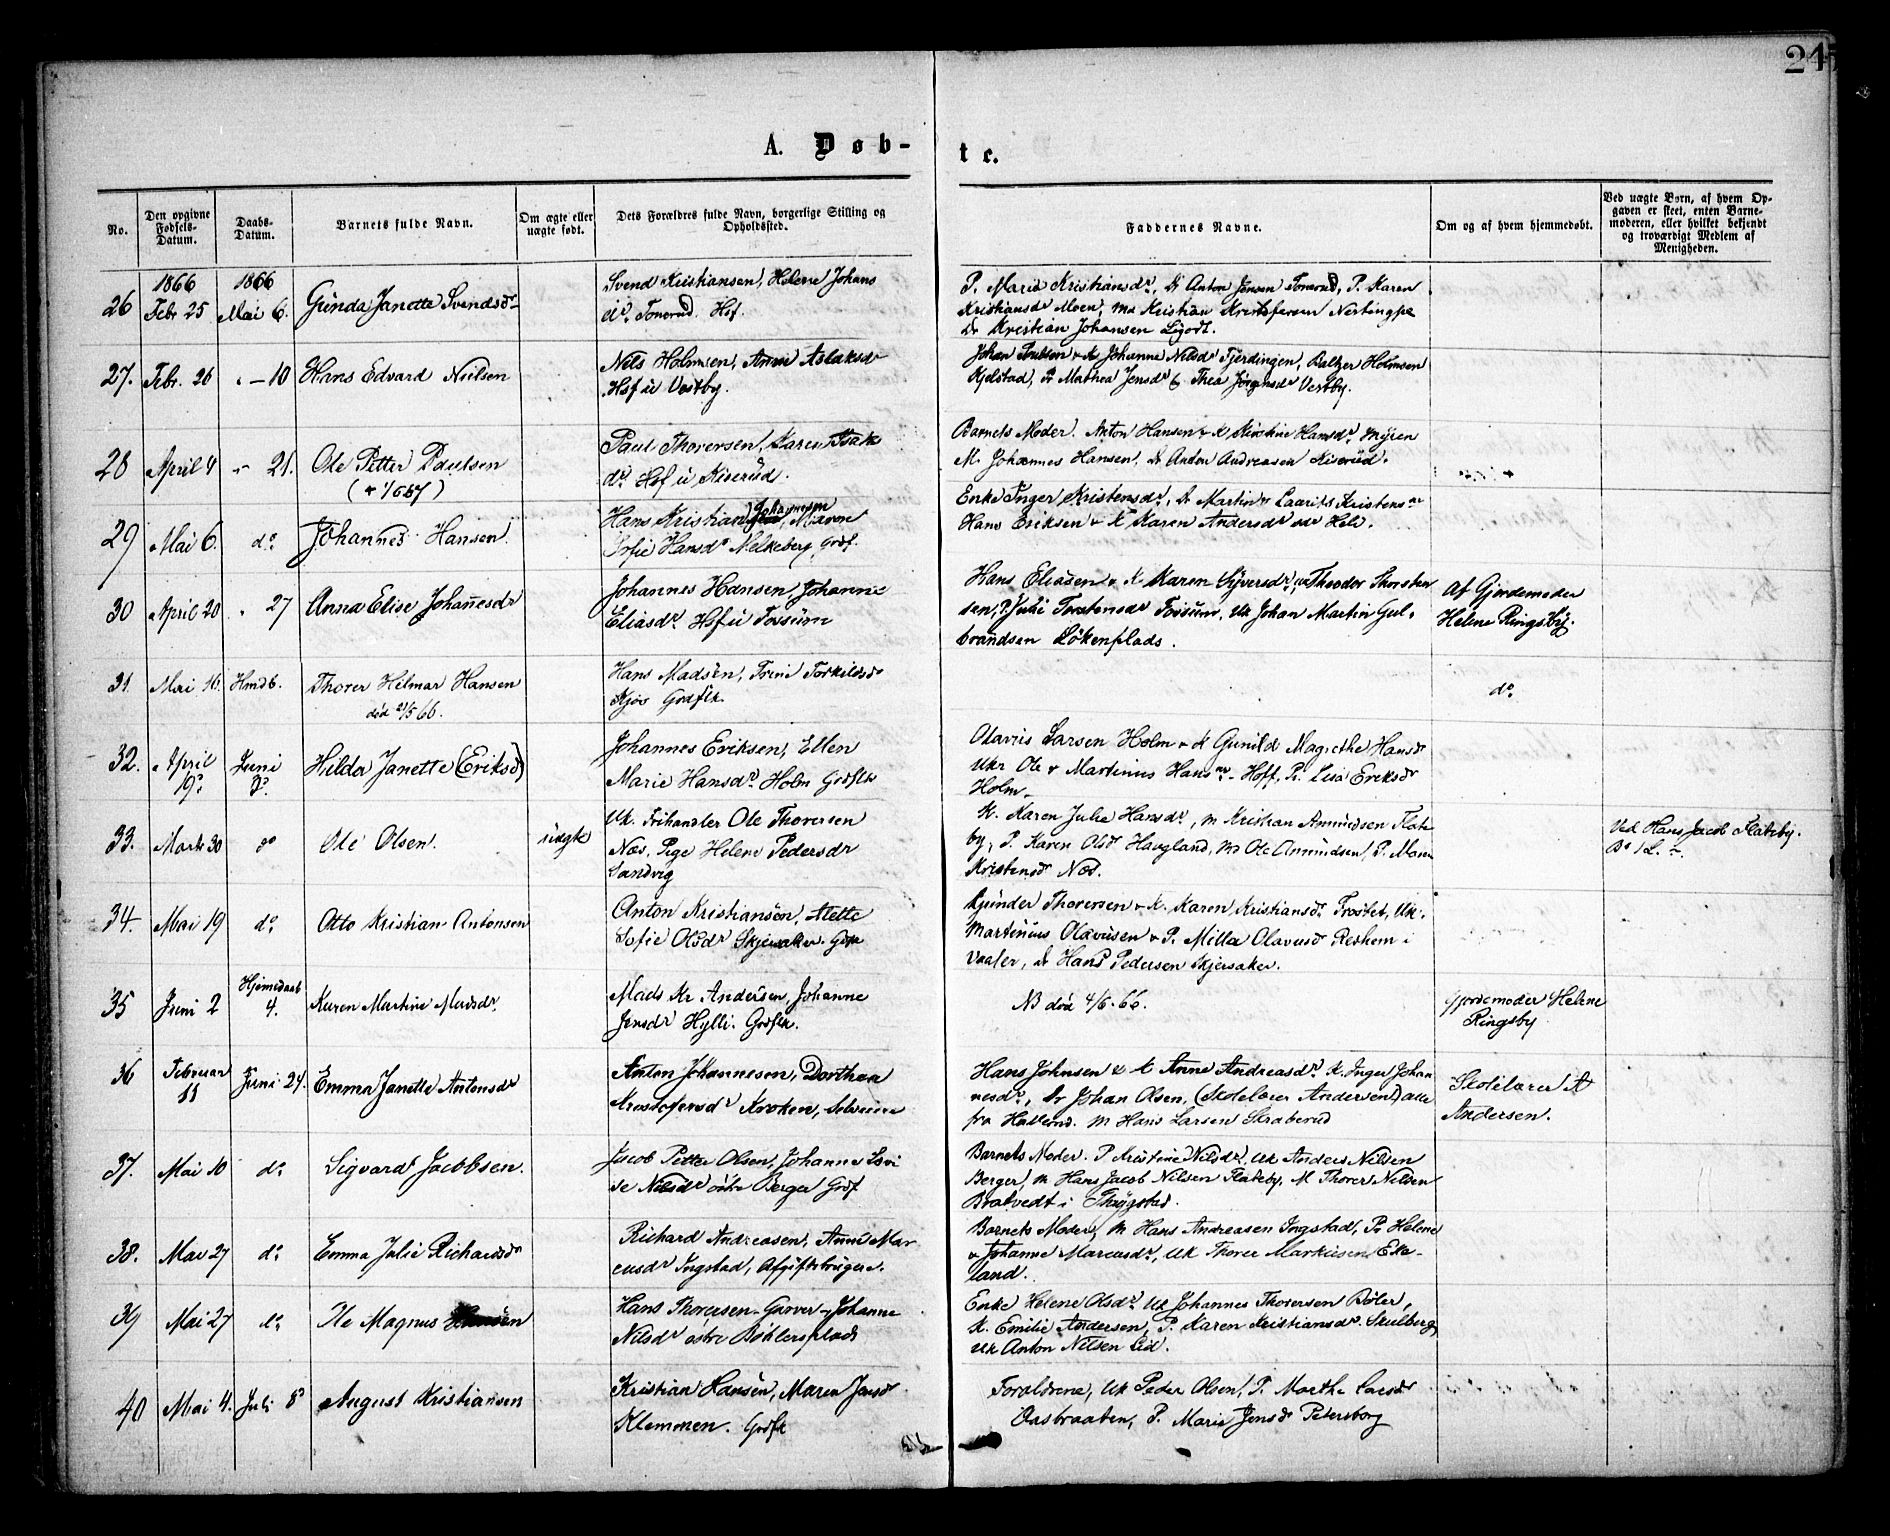 24
A. Døb-
te.
No.
Den opgivne Fødsels-Datum.
Daabs-Datum.
Barnets fulde Navn.
Om ægte eller uægte født.
Dets Forældres fulde Navn, borgerlige Stilling og Opholdssted.
Faddernes Navne.
Om og af hvem hjemmedøbt.
Ved uægte Børn, af hvem Op-
gaven er skeet, enten Barne-
moderen, eller hvilket bekjendt
og troværdigt Medlem af
Menigheden.
1866 1866
26 Febr. 25 Mai 6. Gunda Janette Svendsdr
Svend Kristiansen, Helene Johans
dr. Tomerud. Hsf.
P. Marie Kristiansdr, Anton Jensen Tomerud, P. Karen
Kristiansdr Moen, Kristian Kristofersen
Kristian Johansen
27. Febr. 26 " - 10 Hans Edvard Nielsen
Nils Holmsen, Anne Aslaksdr
Hsf u Vestby.
Johan Poulsen & K Johanne Nilsdr Fjerdingen, Baltzer Holmsen
Kjelstad, P. Mathea Jensdr & Thea Jørgensdr Vestby.
28 April 4 " 21. Ole Petter Paulsen
Paul Thorersen, Karen Isak
dr. Hsf u Kiserud.
Barnets Moder. Anton Hansen & K Kirstine Hansdr. Myren
M. Johannes Hansen, Anton Andreasen Kiserud.
29 Mai 6. do. Johannes Hansen.
Hans Kristian Johannesen,
Sofie Hansdr Nelkeberg, Grdf.
Enke Inger Kristensdr, Martin & Laurits Kristens
Hans Eriksen & K Karen Andersdr
30 April 20 " 27 Anna Elise Johanesdr
Johannes Hansen, Johanne
Eliasdr. Hsf u Fossum
Hans Eliasen & K Karen Syversdr, Theodor Thorsten
sen, P. Julie Torstensdr Fossum, Uk Johan Martin Gul-
brandsen Løkenplads.
Af Gjordemoder
Helene Ringsby.
31 Mai 16. Hmdb. Thorer Hilmar Hansen
død 21/5 66.
Hans Madsen, Trine Torkildsdr
Kjos Grdflk.
do.
32. April 19. Juni 3. Hilda Janette (Eriksd)
Johannes Eriksen, Ellen
Marie Hansdr. Holm Grdflk
Olavus Larsen Holm & K Gunild Magrethe Hansdr
Ukr Ole & Martinus Hans Hoff, P. Lisa Eriksdr
Holm.
33. Marts 30 do Ole Olsen. uægte
Uk. Frihandler Ole Thoresen
Næs, Pige Helene Pedersdr
Sandvig
K. Karen Julie Hansdr, M Kristian Amundsen Flate-
by, P. Karen Olsdr Haugland, M Ole Amundsen, P. Maren
Kristensdr Næs.
Ved Hans Jacob Flateby.
34. Mai 19 do. Otto Kristian Antonsen
Anton Kristiansen, Mette
Sofie Olsdr Skjersaker.
Gunder Thorersen & K. Karen Kristiansdr. Frostet, Uk.
Martinius Olavusen & P. Milla Olavusd i
Vaaler, Hans Pedersen Skjersaker.
35 Juni 2 Hjemedaab 4. Karen Martine Madsdr.
Mads Kr Andersen, Johanne
Jensdr Hylli. Grdflk.
NB død 4/6. 66.
Gjordemoder Helene
Ringsby
36 Februar 11 Juni 24. Emma Janette Antonsdr
Anton Johannesen, Dorthea
Kristofersdr Kroken,
Hans Johnsen & K Anne Andreasdr. K. Inger Johan
nesdr, Johan Olsen, (Skolelærer Andersen) alle
fra M Hans Larsen Skraberud
Skolelærer A
Andersen.
37. Mai 10 do. Sigvard Jacobsen.
Jacob Petter Olsen, Johanne Lovi
se Nilsdr østre Berger Grdf
Barnets Moder. P Kristine Nilsdr, Uk Anders Nilsen
Berger, M Hans Jacob Nilsen Flateby, M Thorer Nilsen
Bratvedt i Trøgstad.
38. Mai 27 do. Emma Julie Richardsdr
Richard Andreasen, Anne Mar
cusdr Ingstad, Afgiftsbruger.
Barnets Moder, M Hans Andreasen Ingstad, P. Helene
& Johanne Marcusdr, Uk Thorer Markusen Eke-
land.
39 Mai 27 do. Ole Magnus Hansen
Hans Thorersen Garver & Johanne
Nilsdr østre Bøhlersplads
Enke Helene Olsdr. Uk Johannes Thorersen Bøler,
K. Emilie Andersen, P. Karen Kristiansdr. Skulberg,
Uk Anton Nilsen Lid.
40 Mai 4. Juli 8 August Kristiansen
Kristian Hansen, Maren Jensdr
Klemmen. Grdflk
Forældrene, Uk Peder Olsen, P. Marthe Larsdr
Aasbraaten, P. Marie Jensdr Petersborg